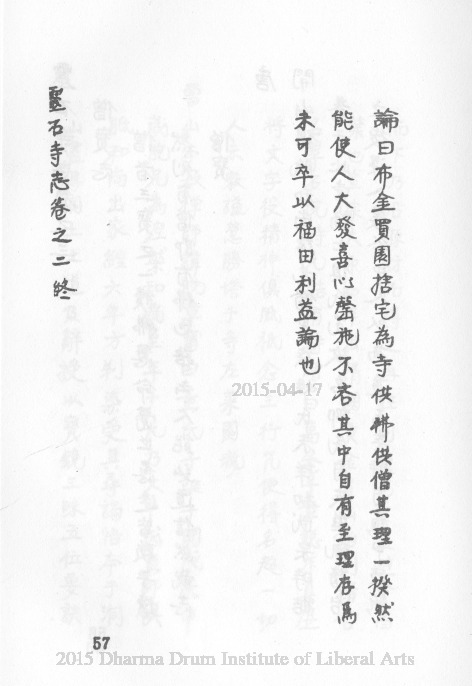 論曰布金買園捨宅為寺供佛供僧其理一揆然
能使人大發喜心罄施不吝其中自有至理存焉
未可卒以福田利益論也
靈石寺志卷之二終
57
2015-04-17
2015 Dharma Drum Institute of Liberal Arts